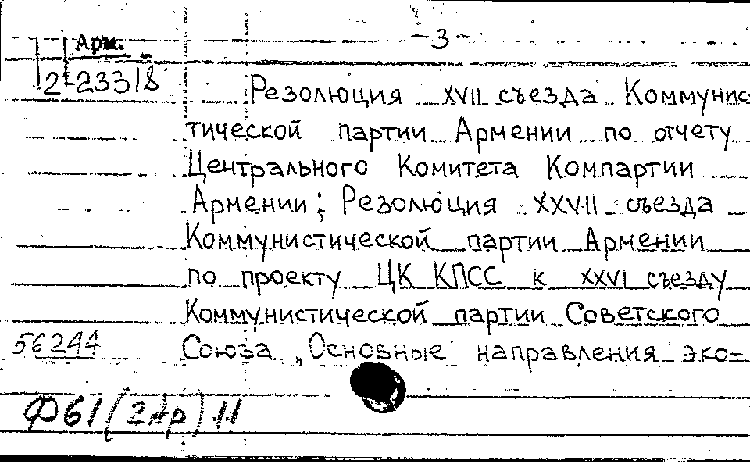 - 3 -
Арм.
2-23318
Резолюция XVII съезда Коммунис-
тической партии Армении по отчету
Центрального Комитета Компартии
Армении; Резолюция XXVII съезда
Коммунистической партии Армении
по проекту ЦК КПСС к XXVI съезду
Коммунистической партии Советского
56244 Союза „Основные направления эко-
Ф61(2Ар)11